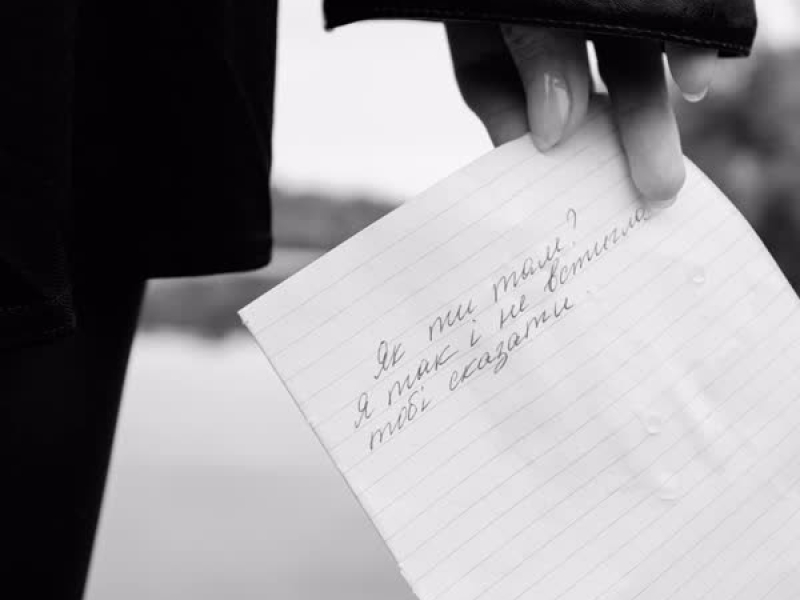 Як ти там?
Я так і не встигла
тобі сказати.